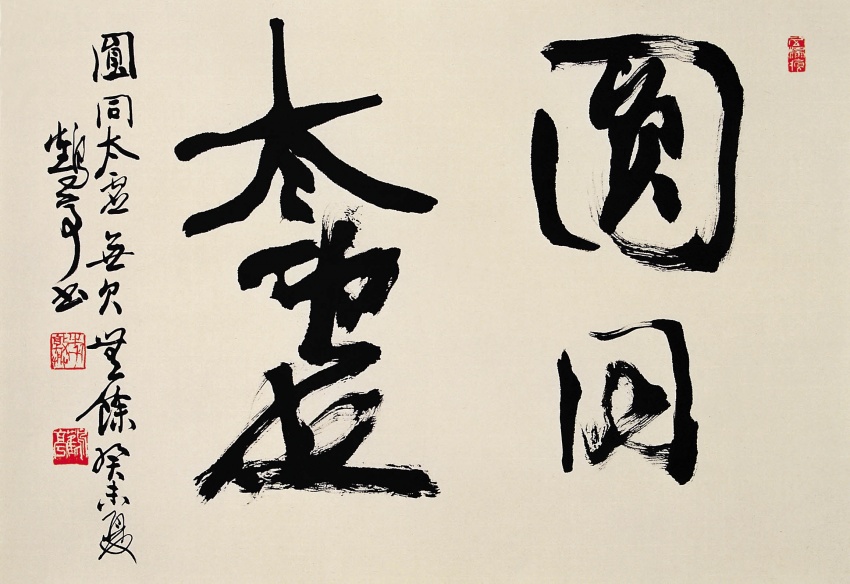 圓同
太虛
圓同太虛無欠無餘癸未夏
鶴亭書